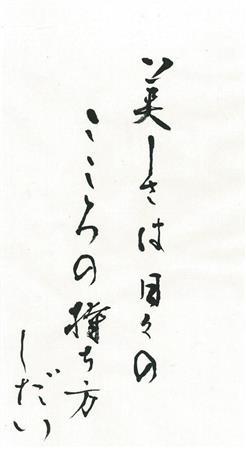 美しさは日々の
こころの持ち方
しだい